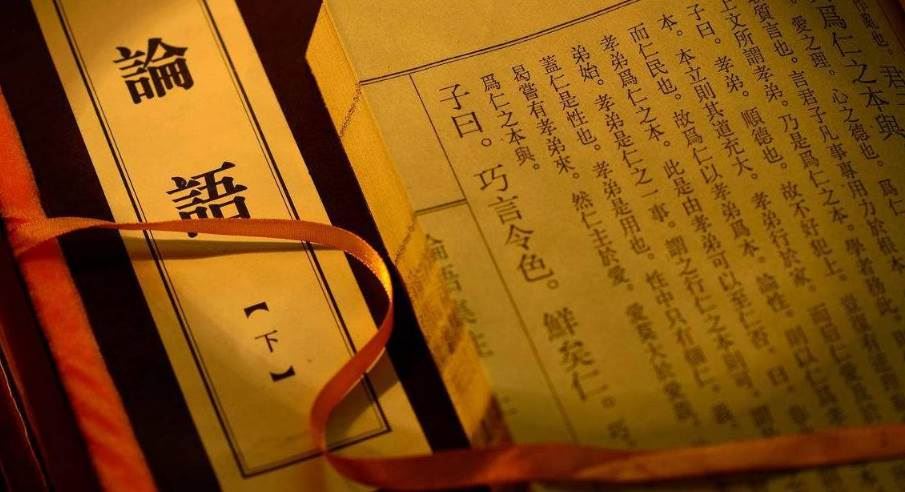 論語
【下】
爲仁之本與
愛之理。心之德也。爲仁
質言也。言君子凡事專用力於根本
上文所謂孝弟。乃是爲仁之本。學者務此
子曰。孝弟。順德也。故不好犯上。豈復有逆
本。本立則其道充大。孝弟行於家。而後仁愛及於
而仁民也。故爲仁以孝弟爲本。論性。則以仁爲
孝弟爲仁之本。此是由孝弟可以至仁否。曰。
弟始。孝弟是仁之一事。謂之行仁之本則可。
蓋仁是性也。孝弟是用也。性中只有箇仁。義
曷嘗有孝弟來。然仁主於愛。愛莫大於愛親
爲仁之本與。
子曰。巧言令色。鮮矣仁。
論語集註